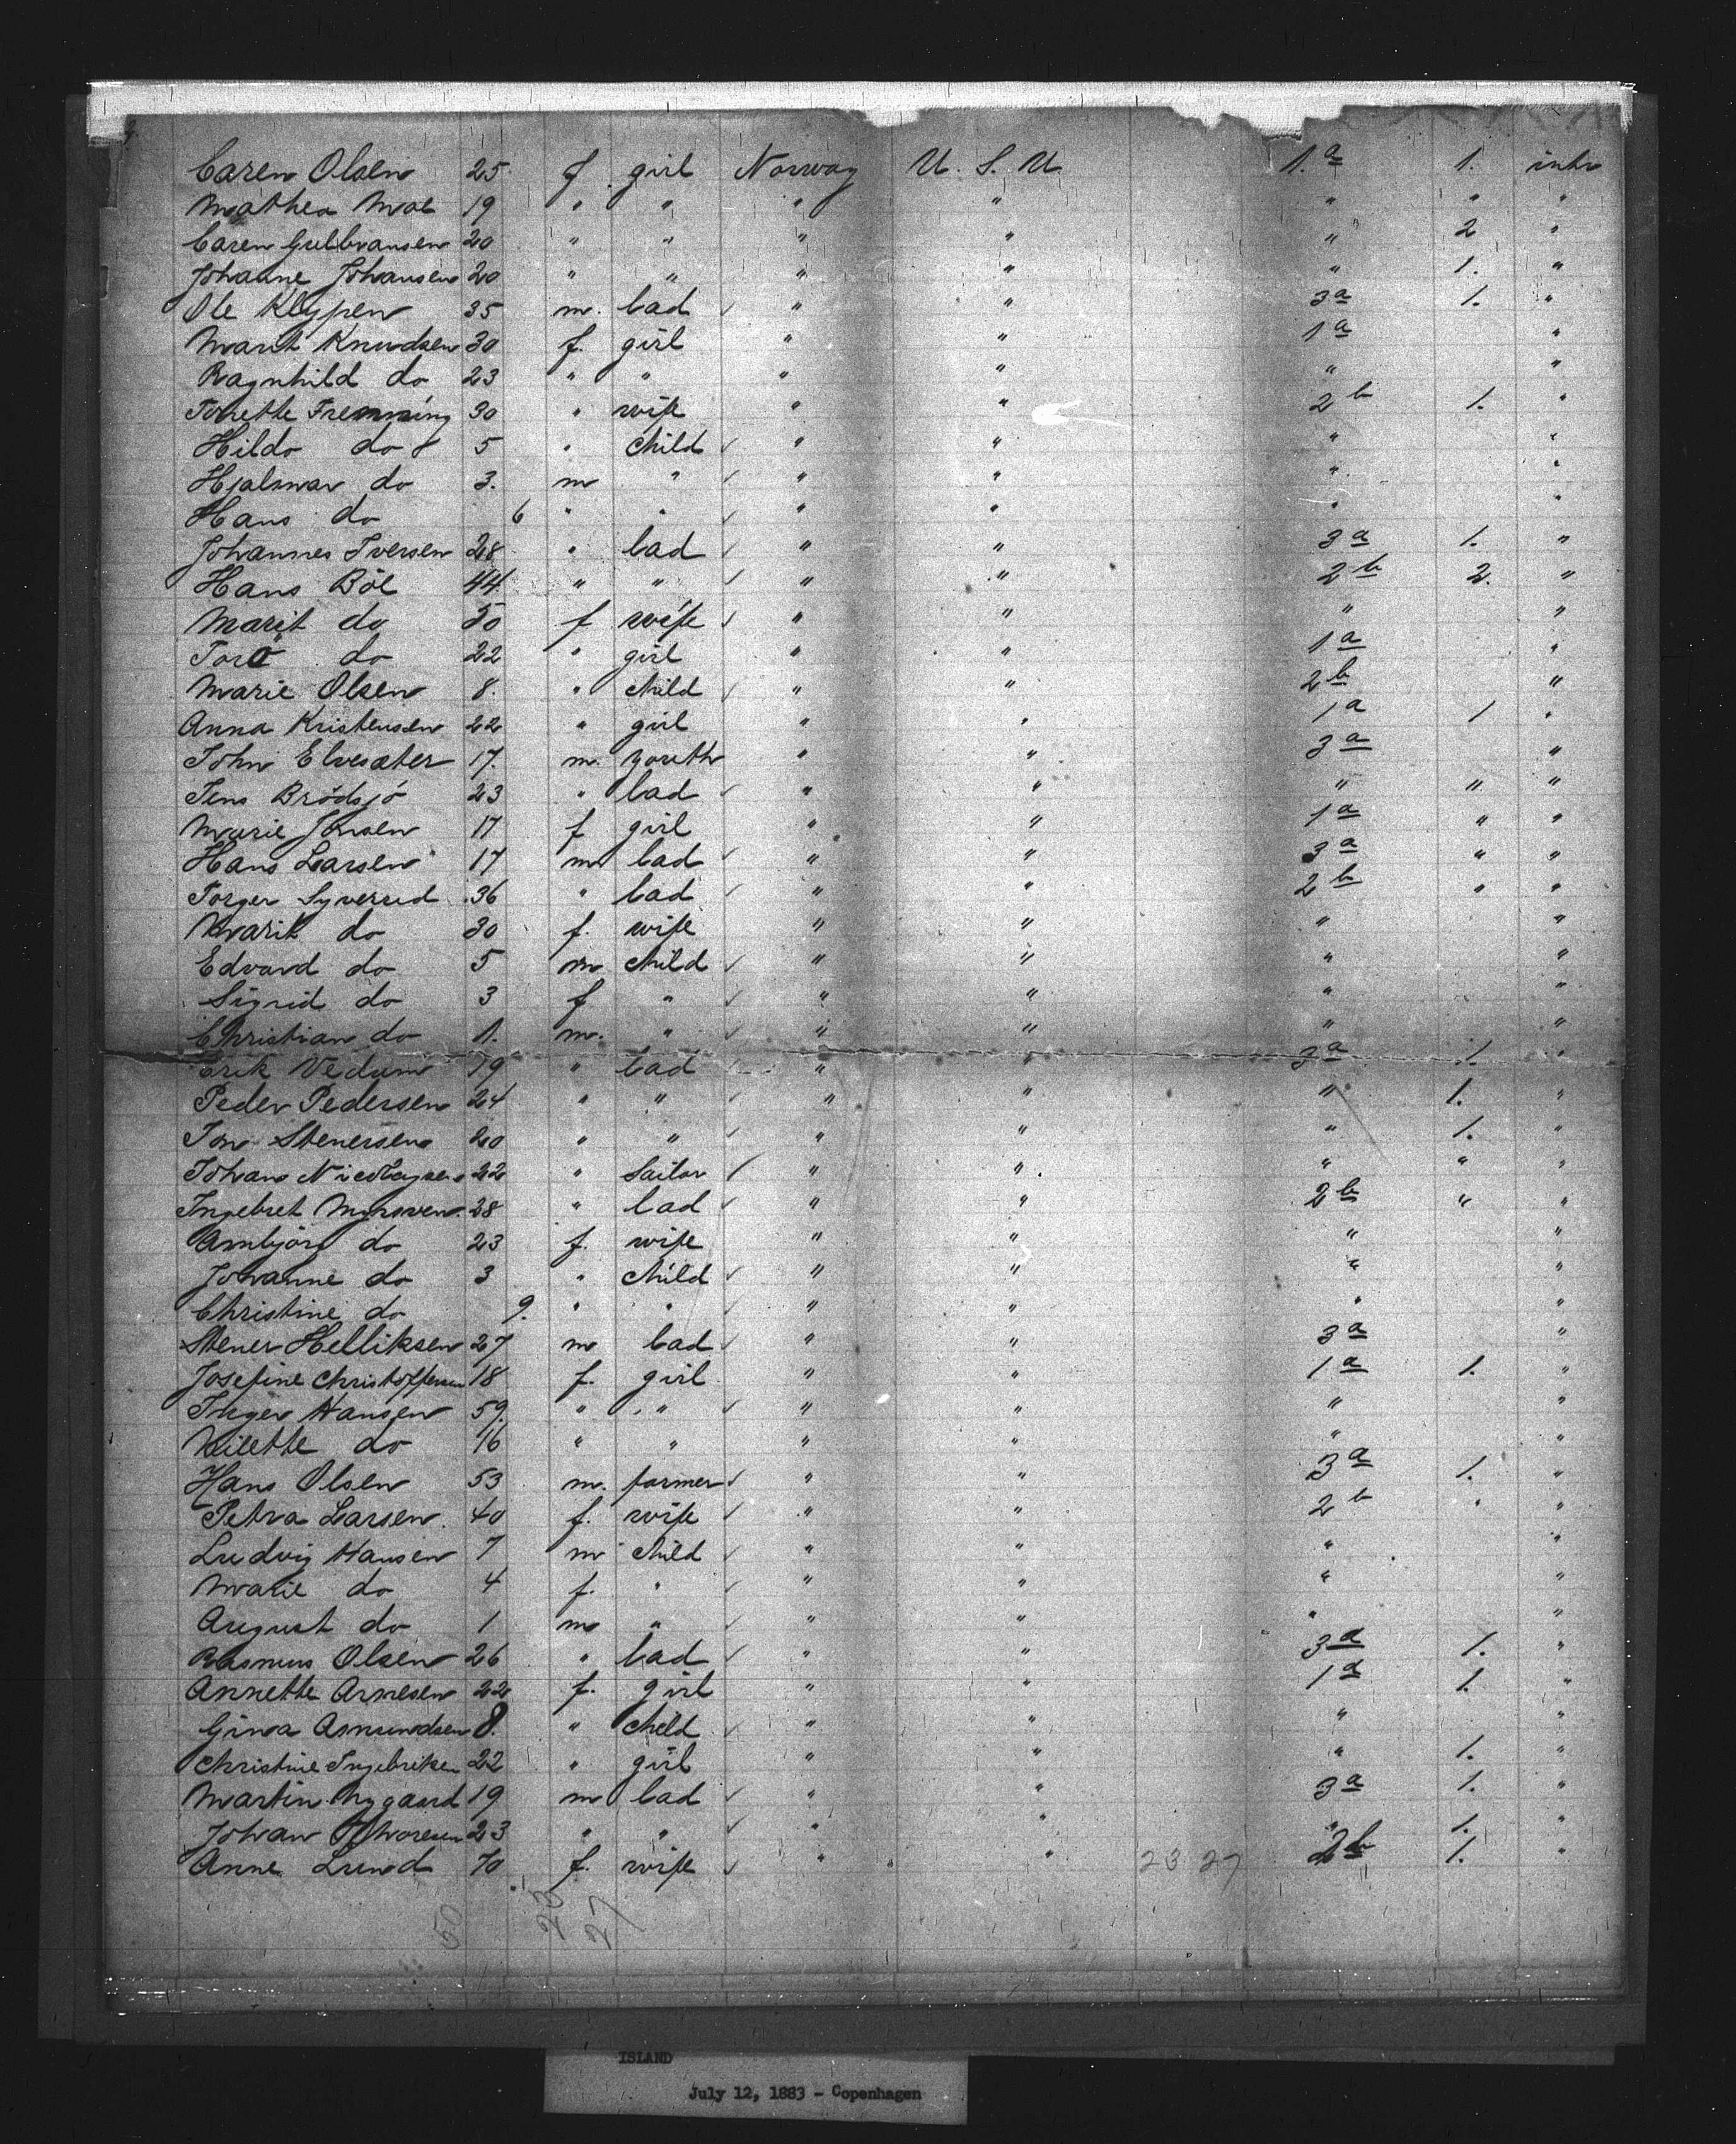 Caren Olsen 25 f. girl Norway U. S. U 1.a 1. intr
Mathea Moe 19 " " " " " " "
Caren Gulbransen 20 " " " " " 2 "
Johanne Johansen 20 " " " " " 1. "
Ole Klypen 35 m. lad ✓ " " 3a 1. "
Marit Knudsen 30 f. girl " " 1a "
Ragnhild do 23 " " " " " "
Torette Fremming 30 " wife " " 2b 1. "
Hilda do 5 " child ✓ " " " "
Hjalmar do 3. m " ✓ " " " "
Hans do 6 " " ✓ " " " "
Johannes Iversen 28 " lad ✓ " " 3a 1. "
Hans Böe 44 " " ✓ " " 2b 2. "
Marit do 50 f wife ✓ " " " "
Torö do 22 " girl " " 1a "
Marie Olsen 8. " child ✓ " " 2b "
Anna Kristensen 22 " girl " " 1a 1 "
John Elvesæter 17. m. youth " " 3a "
Jens Brödsjö 23 " lad ✓ " " " " "
Marie Jensen 17 f girl " " 1a " "
Hans Larsen 17 m lad ✓ " " 3a " "
Torger Syverrud 36 " lad ✓ " " 2b " "
Marit do 30 f. wife " " " "
Edvard do 5 m child ✓ " " " "
Sigrid do 3 f " ✓ " " " "
Christian do 1. m. " ✓ " " " "
Erik Vedum 19 " lad ✓ " " 3a 1. "
Peder Pedersen 24 " " ✓ " " " 1. "
Jon Stenersen 20 " " ✓ " " " 1. "
Johans 22 " Sailor ✓ " " " " "
Ingebret 28 " lad ✓ " " 2b " "
Arnbjörg do 23 f. wife " " " "
Johanne do 3 " child ✓ " " " "
Christine do 9. " " ✓ " " " "
Stener Helliksen 27 m lad ✓ " " 3a "
Josefine Christoffersen 18 f. girl " " 1a 1. "
Inger Hansen 59. " " ✓ " " " "
Milette do 16 " " " " " "
Hans Olsen 53 m. farmer ✓ " " 3a 1. "
Petra Larsen 40 f. wife ✓ " " 2b " "
Ludvig Hansen 7 m child ✓ " " " "
Marie do 4 f. " ✓ " " " "
August do 1 m " ✓ " " " "
Rasmus Olsen 26 " lad ✓ " " 3a 1. "
Annette Arnesen 22 f. girl " " 1a 1. "
Gina Asmundsen 8. " child ✓ " " " "
Christine Ingebriksen 22 " girl " " " 1. "
Martin Nygaard 19 m lad ✓ " " 3a 1. "
Johan Thoresen 23 " " ✓ " " " 1. "
Anne Lund 70 f. wife ✓ " " 23 27 2b 1. "
50 23 27
ISLAND
July 12, 1883 - Copenhagen